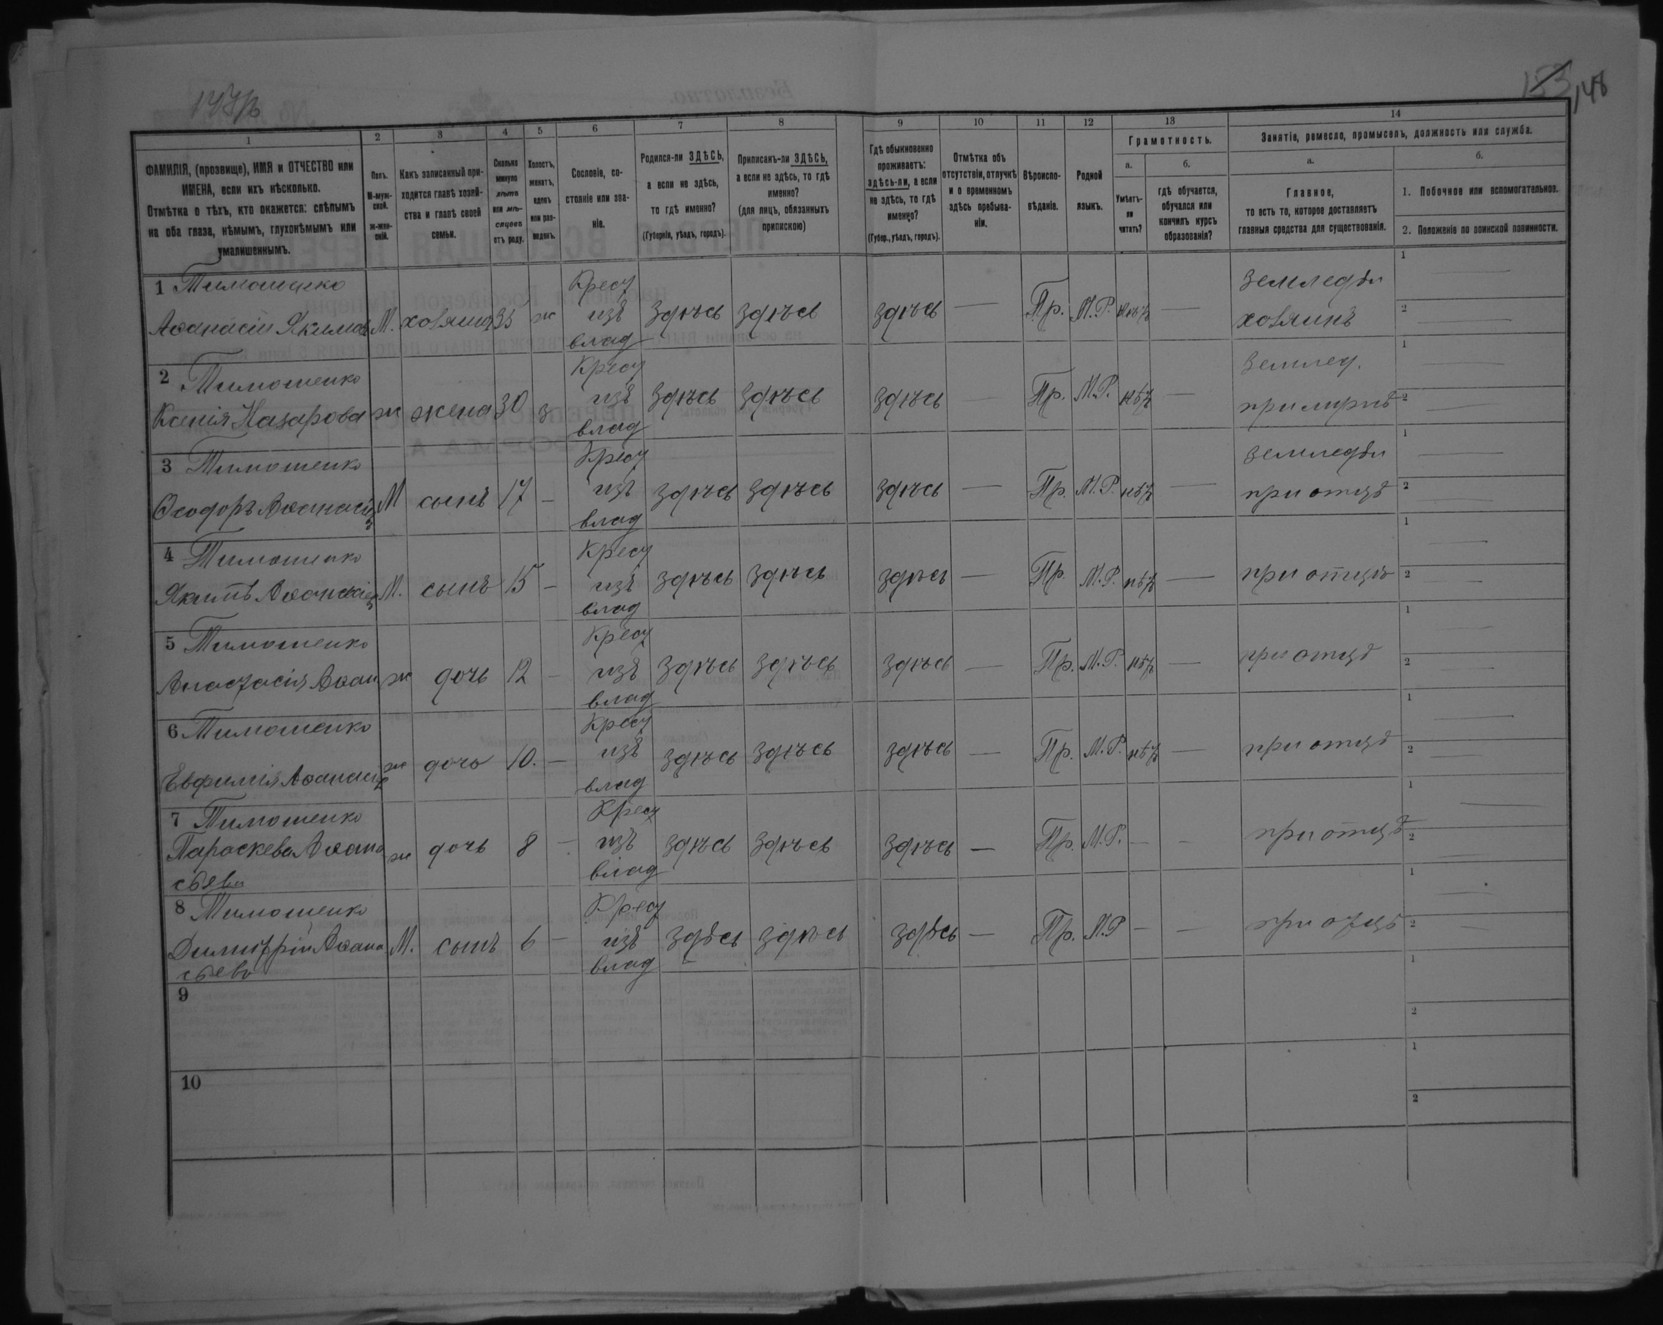 153 148
1 2 3 4 5 6 7 8 9 10 11 12 13 14
ФАМИЛІЯ, (прозвище), ИМЯ и ОТЧЕСТВО или ИМЕНА, если ихъ нѣсколько.
Отмѣтка о тѣхъ, кто окажется: слѣпымъ на оба глаза, нѣмымъ, глухонѣмымъ или умалишеннымъ.
Полъ.
М-мужской.
ж-женскій.
Какъ записанный приходится главѣ хозяйства и главѣ своей семьи.
Сколько минуло лѣтъ или мѣсяцевъ отъ роду.
Холостъ, женатъ, вдовъ или разведенъ.
Сословіе, состояніе или званіе.
Родился-ли ЗДѢСЬ, а если не здѣсь, то гдѣ именно?
(Губернія, уѣздъ, городъ).
Приписанъ-ли ЗДѢСЬ, а если не здѣсь, то гдѣ именно?
(для лицъ, обязанныхъ припискою)
Гдѣ обыкновенно проживаетъ: здѣсь-ли, а если не здѣсь, то гдѣ именно?
(Губер., уѣздъ, городъ).
Отмѣтка объ отсутствіи, отлучкѣ и о временномъ здѣсь пребываніи.
Вѣроисповѣданіе.
Родной языкъ.
Грамотность.
а. б.
Умѣетъ-ли читать?
гдѣ обучается, обучался или кончилъ курсъ образованія?
Занятіе, ремесло, промыселъ, должность или служба.
а. б.
Главное,
то есть то, которое доставляетъ главныя средства для существованія.
1. Побочное или вспомогательное.
2. Положеніе по воинской повинности.
1 Тимошенко Аѳанасій Якимов М. хозяинъ 35 ж Крест изъ влад здѣсь здѣсь здѣсь — Пр. М.Р. нѣтъ — земледѣл хозяинъ 1 — 2 —
2 Тимошенко Ксенія Назарова ж жена 30 з Крест изъ влад здѣсь здѣсь здѣсь — Пр. М.Р. нѣтъ — землед. 1 — 2 —
3 Тимошенко Ѳеодоръ Аѳанасіев М сынъ 17 — Крест изъ влад здѣсь здѣсь здѣсь — Пр. М.Р. нѣтъ — земледѣл при отцѣ 1 — 2 —
4 Тимошенко Якимъ Аѳанасіев М. сынъ 15 — Крест изъ влад здѣсь здѣсь здѣсь — Пр М.Р. нѣтъ — при отцѣ 1 — 2 —
5 Тимошенко Анастасія Аѳан ж дочь 12 — Крест изъ влад здѣсь здѣсь здѣсь — Пр. М.Р. нѣтъ — при отцѣ 1 — 2 —
6 Тимошенко Евфимія Аѳанасіев ж дочь 10. — Крест изъ влад здѣсь здѣсь здѣсь — Пр. М.Р. нѣтъ — при отцѣ 1 — 2 —
7 Тимошенко Параскева Аѳанасьева ж дочь 8 — Крест изъ влад здѣсь здѣсь здѣсь — Пр. М.Р. — — при отцѣ 1 — 2 —
8 Тимошенко Димитрій Аѳанасьевъ М. сынъ 6 — Крест изъ влад здѣсь здѣсь здѣсь — Пр. М.Р — — при отцѣ 1 — 2 —
9 1 2
10 1 2